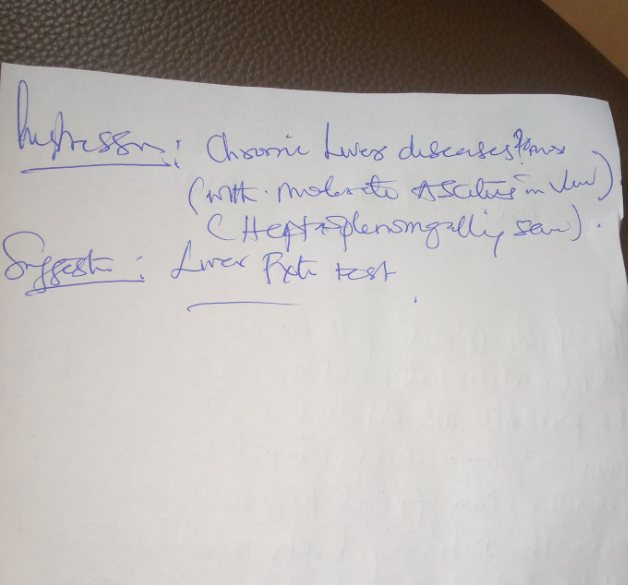 Impression: Chronic Liver diseases
(with moderate Ascites in view)
(Heptosplenomgally seen).
Suggest: Liver test